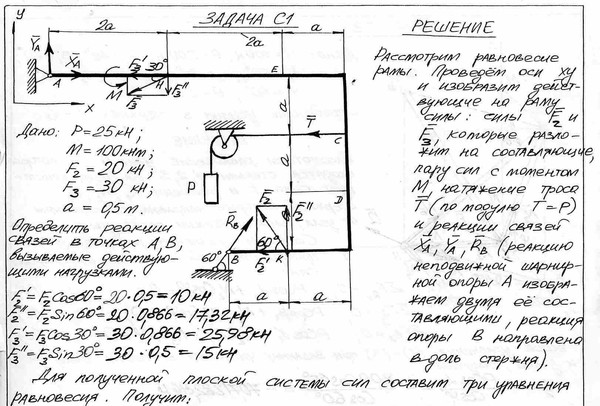 ЗАДАЧА С1
РЕШЕНИЕ
y
x
2a
2a
a
Y̅A
X̅A
A
M
F̅3'
30°
H
F̅3
F̅3''
E
a
a
T̅
C
P
D
F̅2
F̅2''
R̅B
60°
60°
F̅2'
B
K
a
a
Дано: P=25кн;
M=100кнм;
F2=20 кн;
F3=30 кн;
a=0,5м.
Определить реакции
связей в точках А, В,
вызываемые действую-
щими нагрузками.
F2'=F2Cos60°=20·0,5=10кн
F2''=F2Sin60°=20·0,866=17,32кн
F3'=F3Cos30°=30·0,866=25,98кн
F3''=F3Sin30°=30·0,5=15кн
Рассмотрим равновесие
рамы. Проведём оси xy
и изобразим действ-
ующие на раму
силы: силы F̅2 и
F̅3, которые разло-
жим на составляющие,
пару сил с моментом
M, натяжение троса
T̅ (по модулю T=P)
и реакции связей
X̅A, Y̅A, R̅B (реакцию
неподвижной шарнир-
ной опоры А изобра-
жаем двумя её сос-
тавляющими, реакция
опоры В направлена
вдоль стержня).
Для полученной плоской системы сил составим три уравнения
равновесия. Получим: